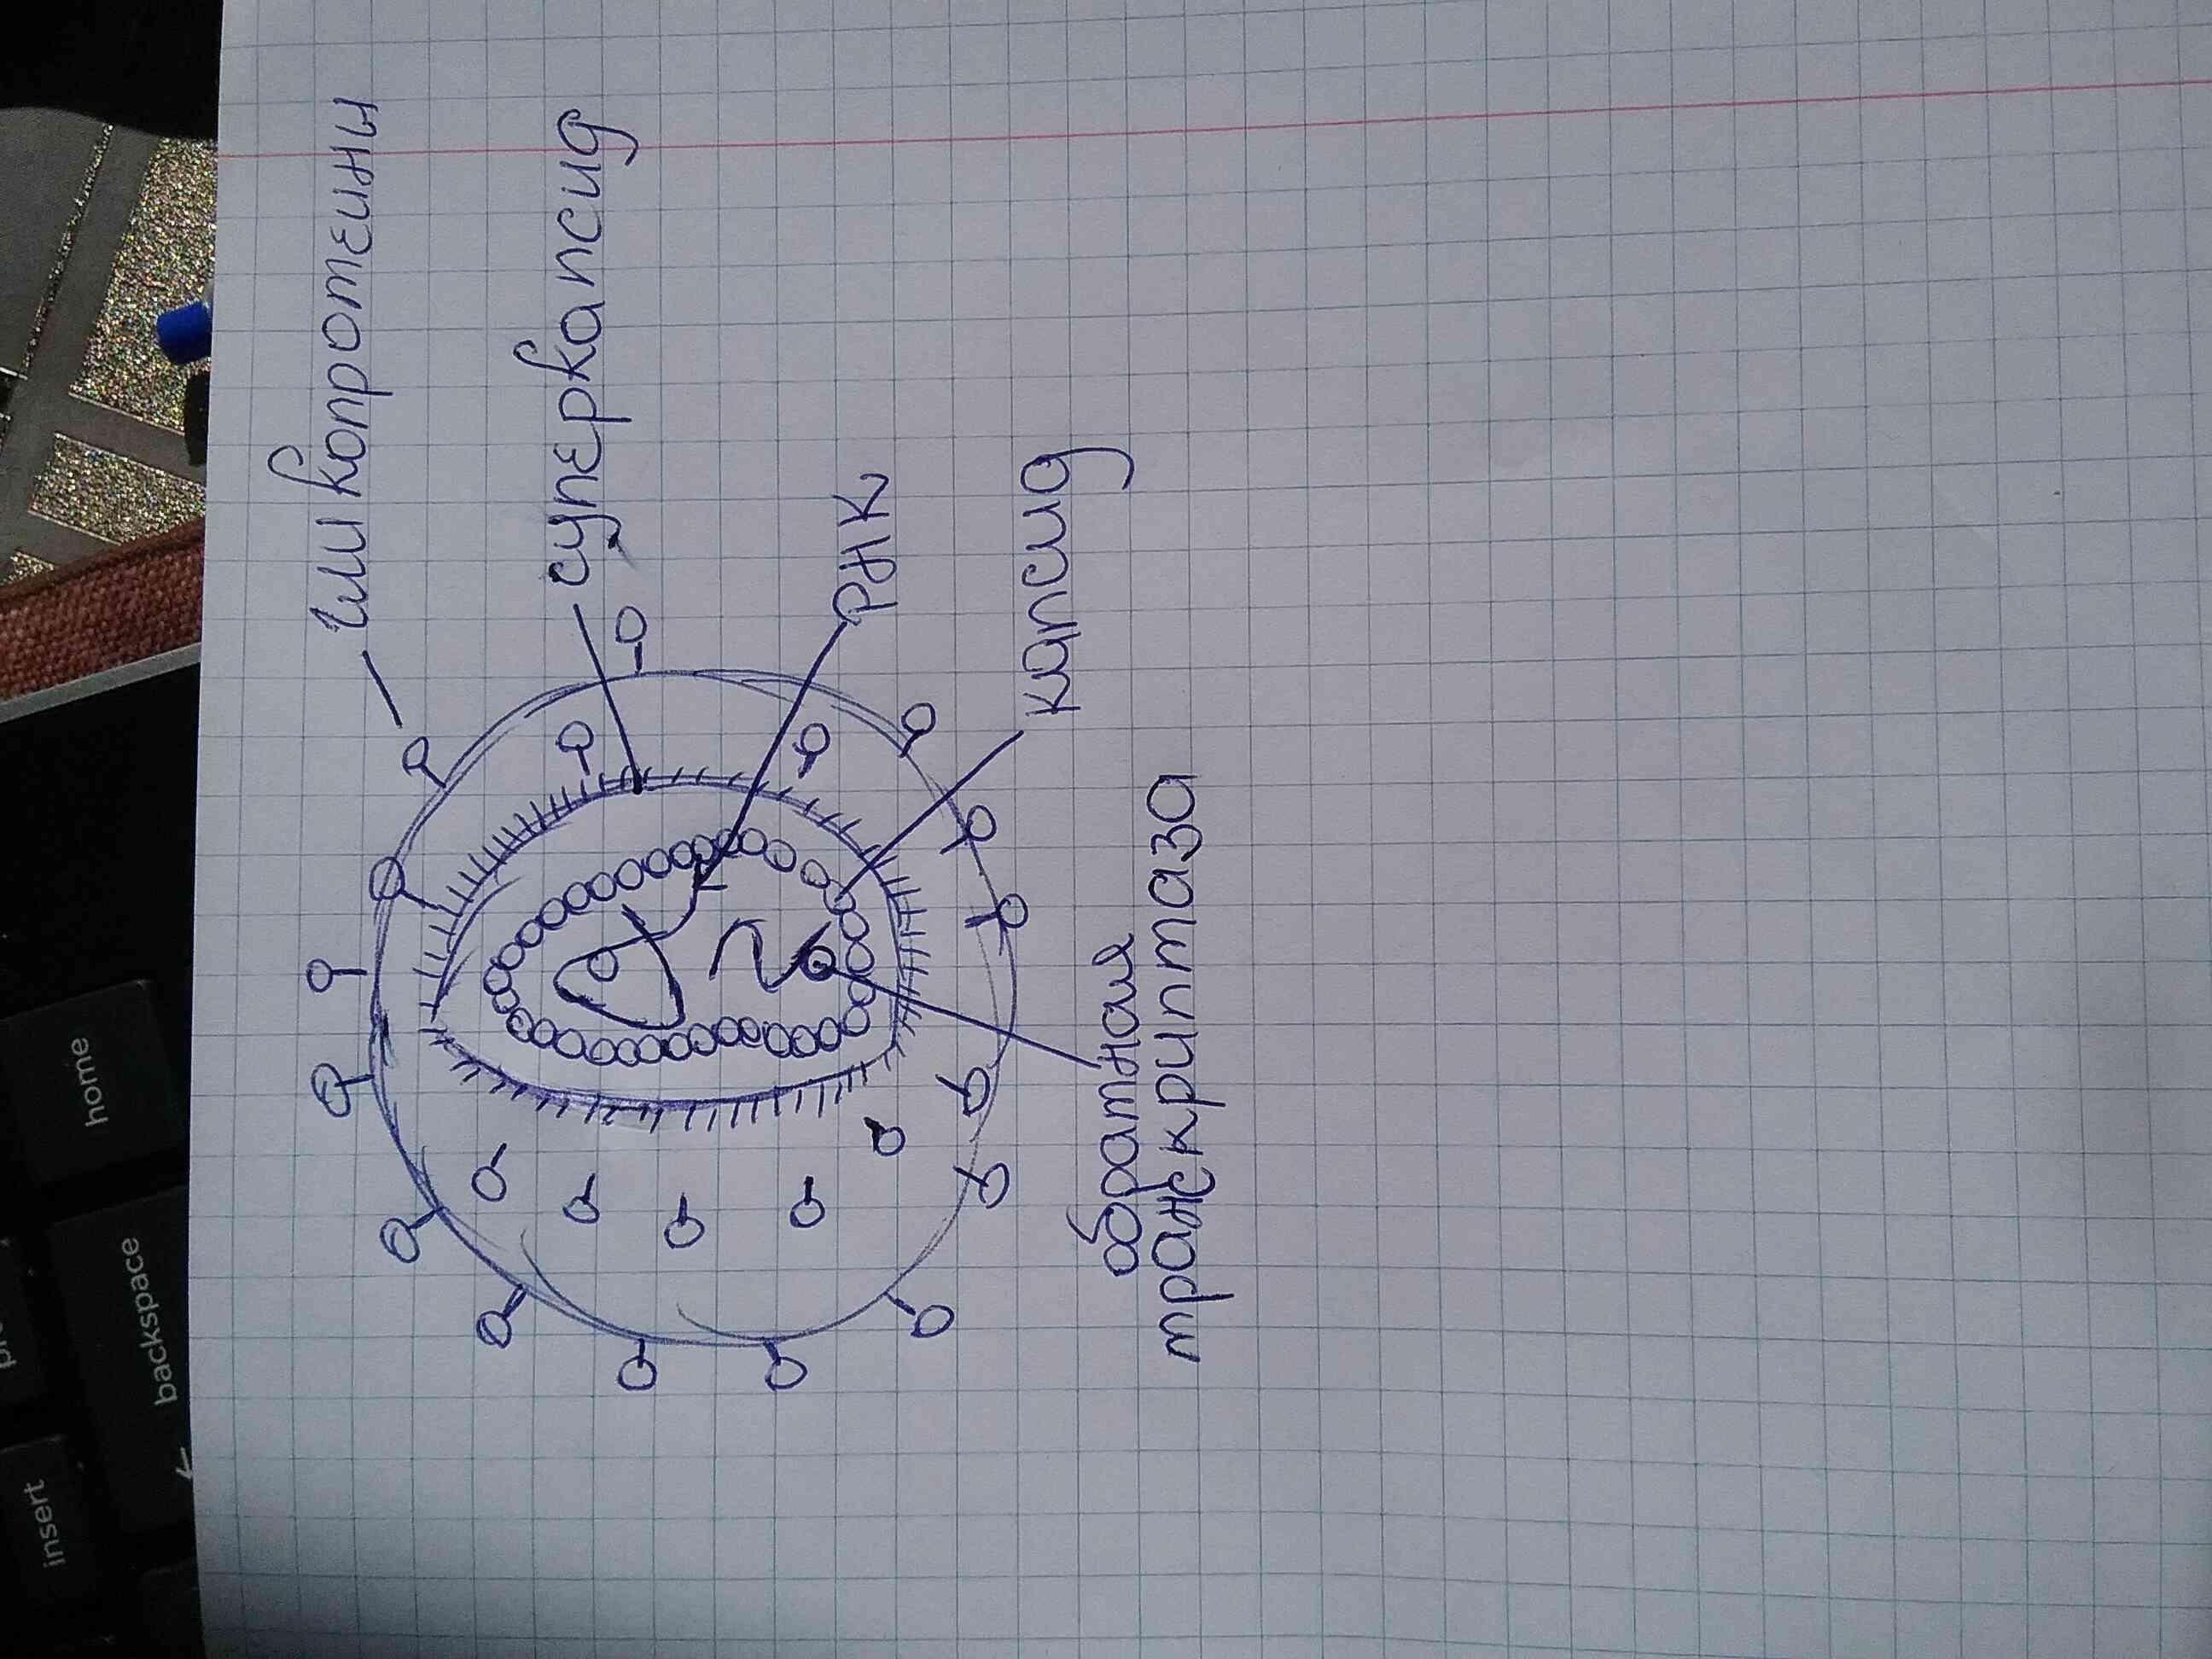 гликопротеины
суперкапсид
РНК
капсид
обратная
транскриптаза
home
← backspace
insert